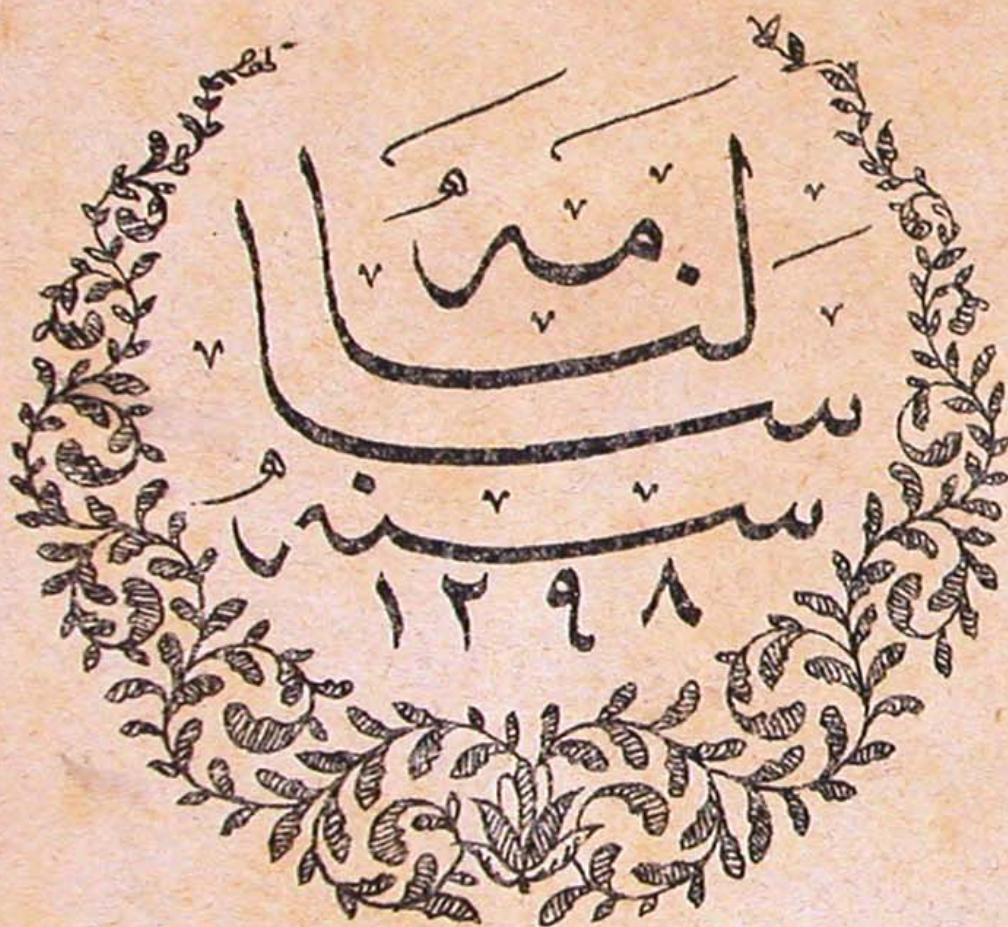 سالنامهٔ
سنهٔ
١٢٩٨